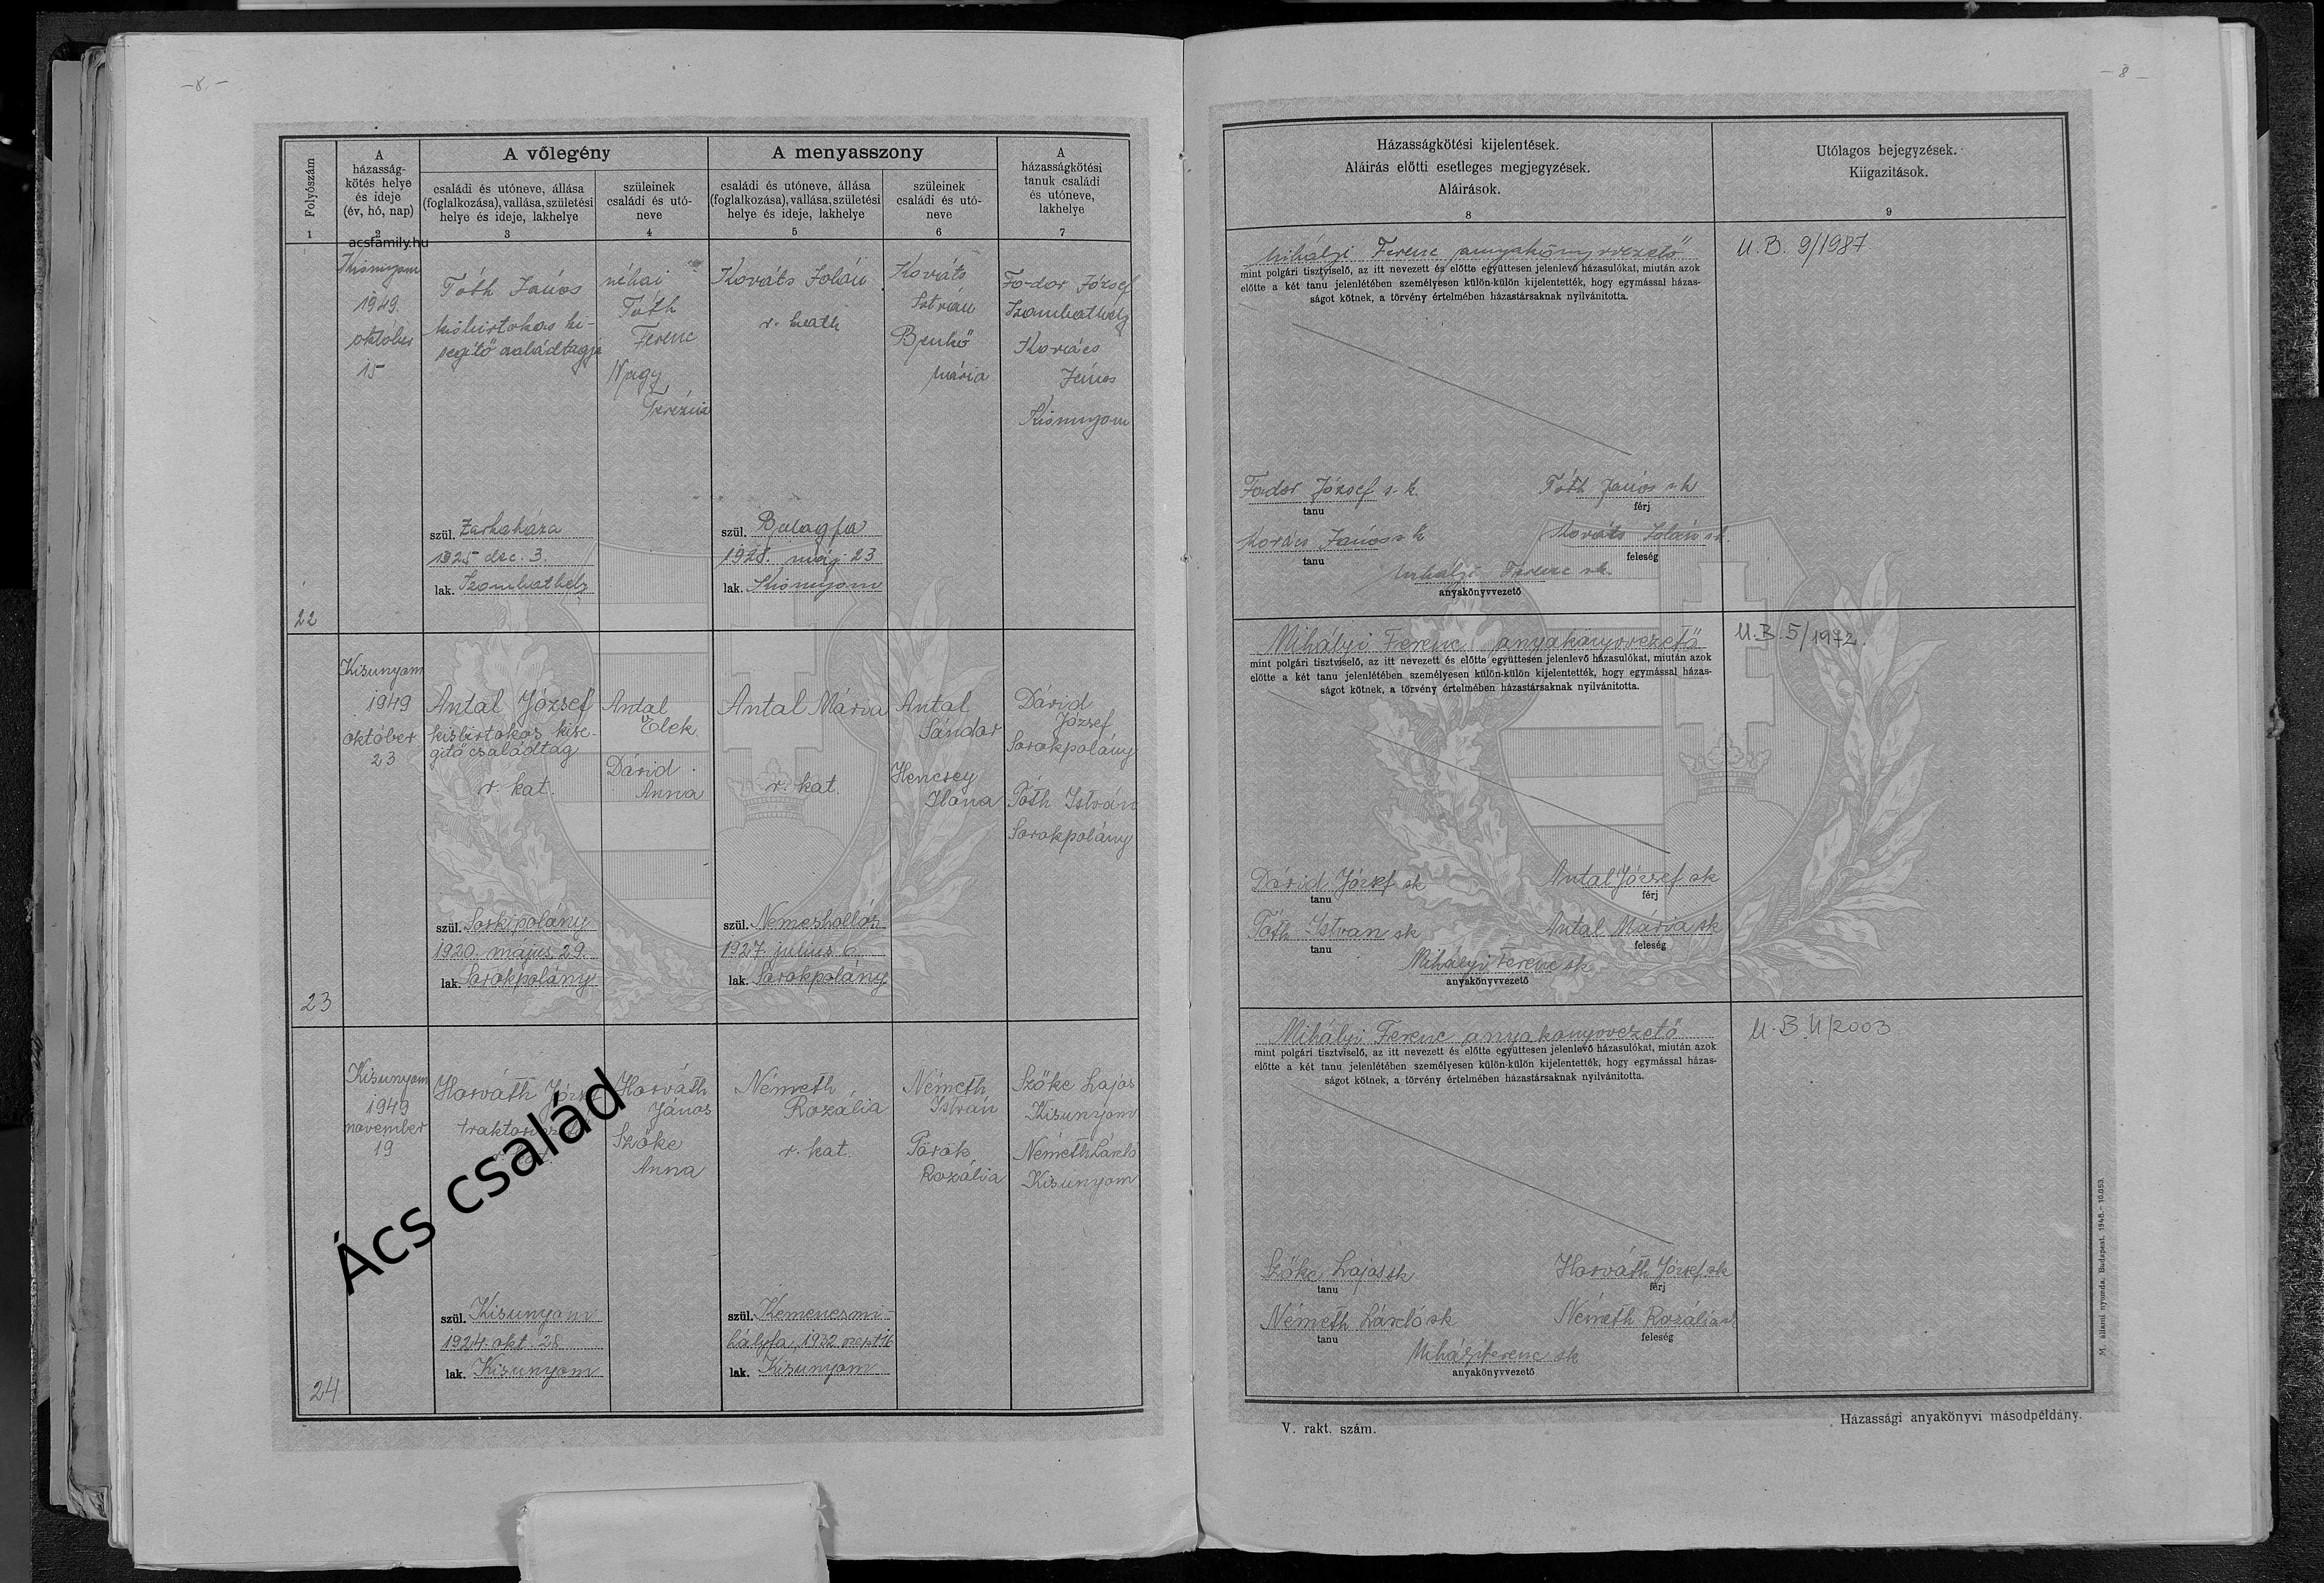 – 8 –
– 8 –
Folyószám
1
A
házasság-
kötés helye
és ideje
(év, hó, nap)
2
A vőlegény
családi és utóneve, állása
(foglalkozása), vallása, születési
helye és ideje, lakhelye
3
szüleinek
családi és utó-
neve
4
A menyasszony
családi és utóneve, állása
(foglalkozása), vallása, születési
helye és ideje, lakhelye
5
szüleinek
családi és utó-
neve
6
A
házasságkötési
tanuk családi
és utóneve,
lakhelye
7
acsfamily.hu
22
Kisunyom
1949.
október
15
Tóth János
kisbirtokos ki-
segítő családtagja
szül. Zarkaháza
1925 dec. 3.
lak. Szombathely
néhai
Tóth
Ferenc
Nagy
Terézia
Kováts Zolán
r. kath
szül. Balogfa
1928. máj. 23
lak. Kisunyom
Kováts
István
Benkő
Mária
Fodor József
Szombathely
Kovács
János
Kisunyom
23
Kisunyom
1949
október
23
Antal József
kisbirtokos kise-
gitő családtag
r. kat.
szül. Sorkipolány
1920. május 29.
lak. Sorokpolány
Antal
Elek
Dávid
Anna
Antal Mária
r. kat.
szül. Nemeskollár
1927. július 6
lak. Sorokpolány
Antal
Sándor
Hencsey
Ilona
Dávid
József
Sorokpolány
Tóth István
Sorokpolány
24
Kisunyom
1949
november
19
Horváth József
szül. Kisunyom
1924. okt. 28
lak. Kisunyom
Horváth
János
Szőke
Anna
Németh
Rozália
r. kat.
szül. Kemenesmi-
hályfa, 1932 szept 16
lak. Kisunyom
Németh
István
Török
Rozália
Szőke Lajos
Kisunyom
Németh László
Kisunyom
Ács család
Házasságkötési kijelentések.
Aláirás előtti esetleges megjegyzések.
Aláirások.
8
Utólagos bejegyzések.
Kiigazitások.
9
Mihályi Ferenc anyakönyvvezető
mint polgári tisztviselő, az itt nevezett és előtte együttesen jelenlevő házasulókat, miután azok
előtte a két tanu jelenlétében személyesen külön-külön kijelentették, hogy egymással házas-
ságot kötnek, a törvény értelmében házastársaknak nyilvánitotta.
U. B. 9/1987
Fodor József s. k.
tanu
Tóth János s k
férj
Kovács János s k
tanu
Kováts Zolán s k
feleség
Mihályi Ferenc sk.
anyakönyvvezető
Mihályi Ferenc anyakönyvvezető
mint polgári tisztviselő, az itt nevezett és előtte együttesen jelenlevő házasulókat, miután azok
előtte a két tanu jelenlétében személyesen külön-külön kijelentették, hogy egymással házas-
ságot kötnek, a törvény értelmében házastársaknak nyilvánitotta.
U. B. 5/1972.
Dávid József sk
tanu
Antal József sk
férj
Tóth István sk
tanu
Antal Mária sk
feleség
Mihályi Ferenc sk
anyakönyvvezető
Mihályi Ferenc anyakönyvvezető
mint polgári tisztviselő, az itt nevezett és előtte együttesen jelenlevő házasulókat, miután azok
előtte a két tanu jelenlétében személyesen külön-külön kijelentették, hogy egymással házas-
ságot kötnek, a törvény értelmében házastársaknak nyilvánitotta.
Szőke Lajos sk
tanu
Horváth József sk
férj
Németh László sk
tanu
Németh Rozália sk
feleség
Mihályi Ferenc sk
anyakönyvvezető
V. rakt. szám.
Házassági anyakönyvi másodpéldány.
M. állami nyomda. Budapest. 1948. – 10.053.